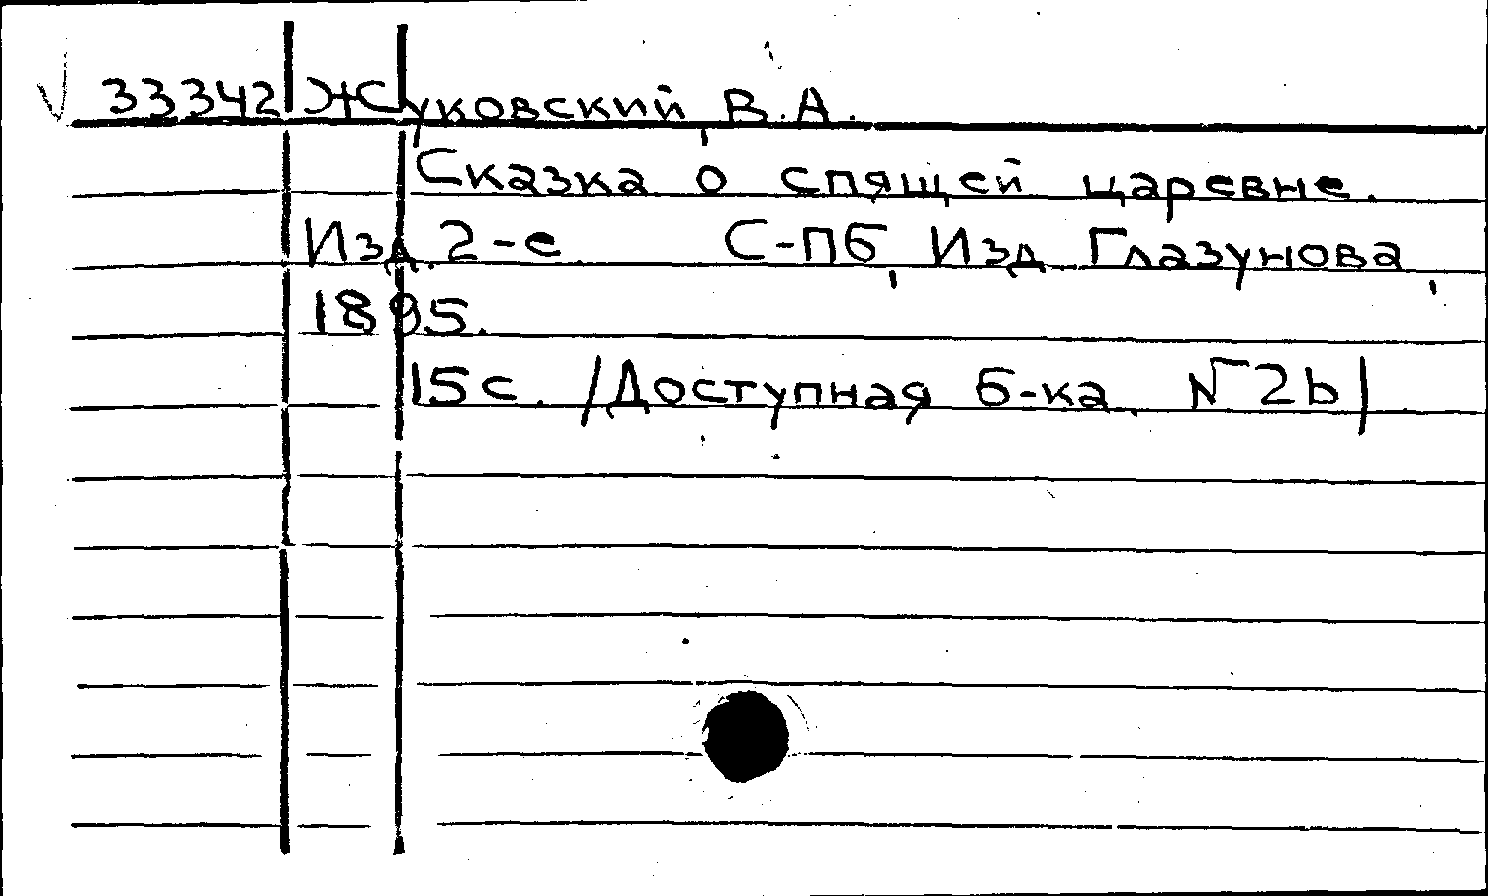 33342 Жуковский, В.А.
Сказка о спящей царевне.
Изд. 2-е. С-Пб, Изд Глазунова,
1895.
15 с. /Доступная б-ка. № 2b/